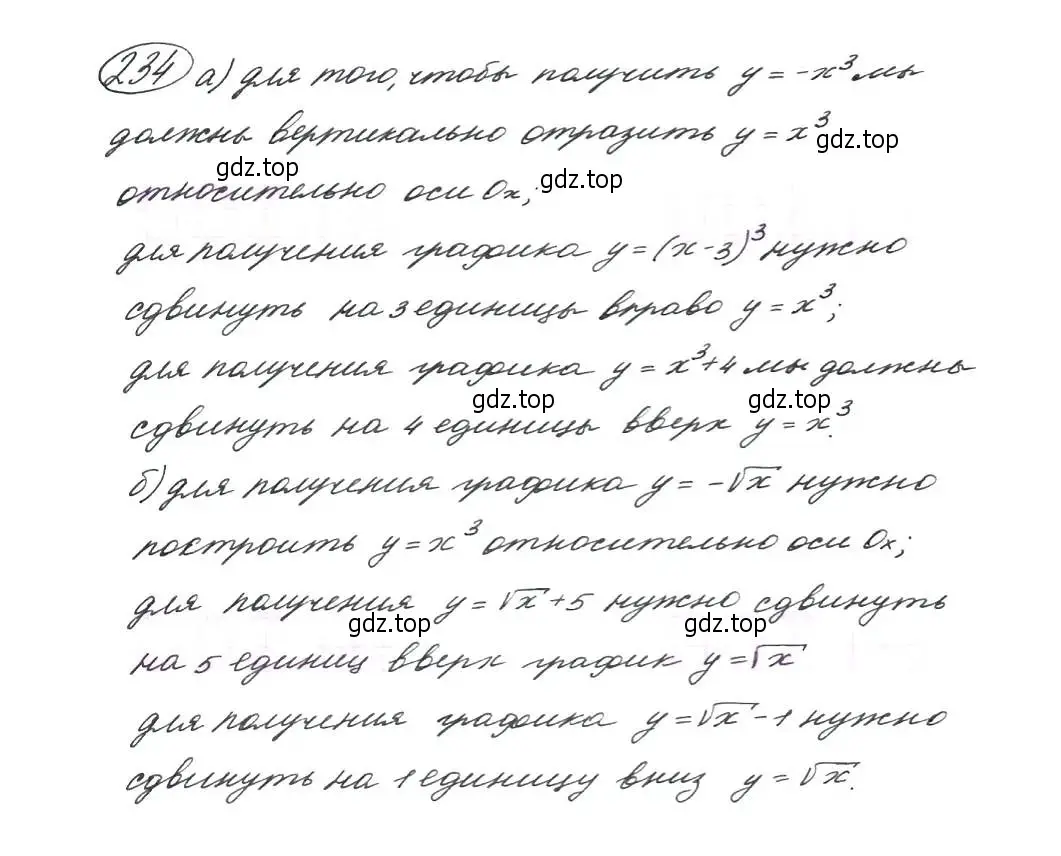 234 а) для того, чтобы получить y = -x³ мы
должны вертикально отразить y = x³
gdz.top
gdz.top
gdz.top
относительно оси Ox;
для получения графика y = (x-3)³ нужно
сдвинуть на 3 единицы вправо y = x³;
для получения графика y = x³+4 мы должны
gdz.top
gdz.top
сдвинуть на 4 единицы вверх y = x³.
б) для получения графика y = -√x нужно
построить y = x³ относительно оси Ox;
для получения y = √x + 5 нужно сдвинуть
gdz.top
gdz.top
на 5 единиц вверх график y = √x
для получения графика y = √x - 1 нужно
сдвинуть на 1 единицу вниз y = √x.